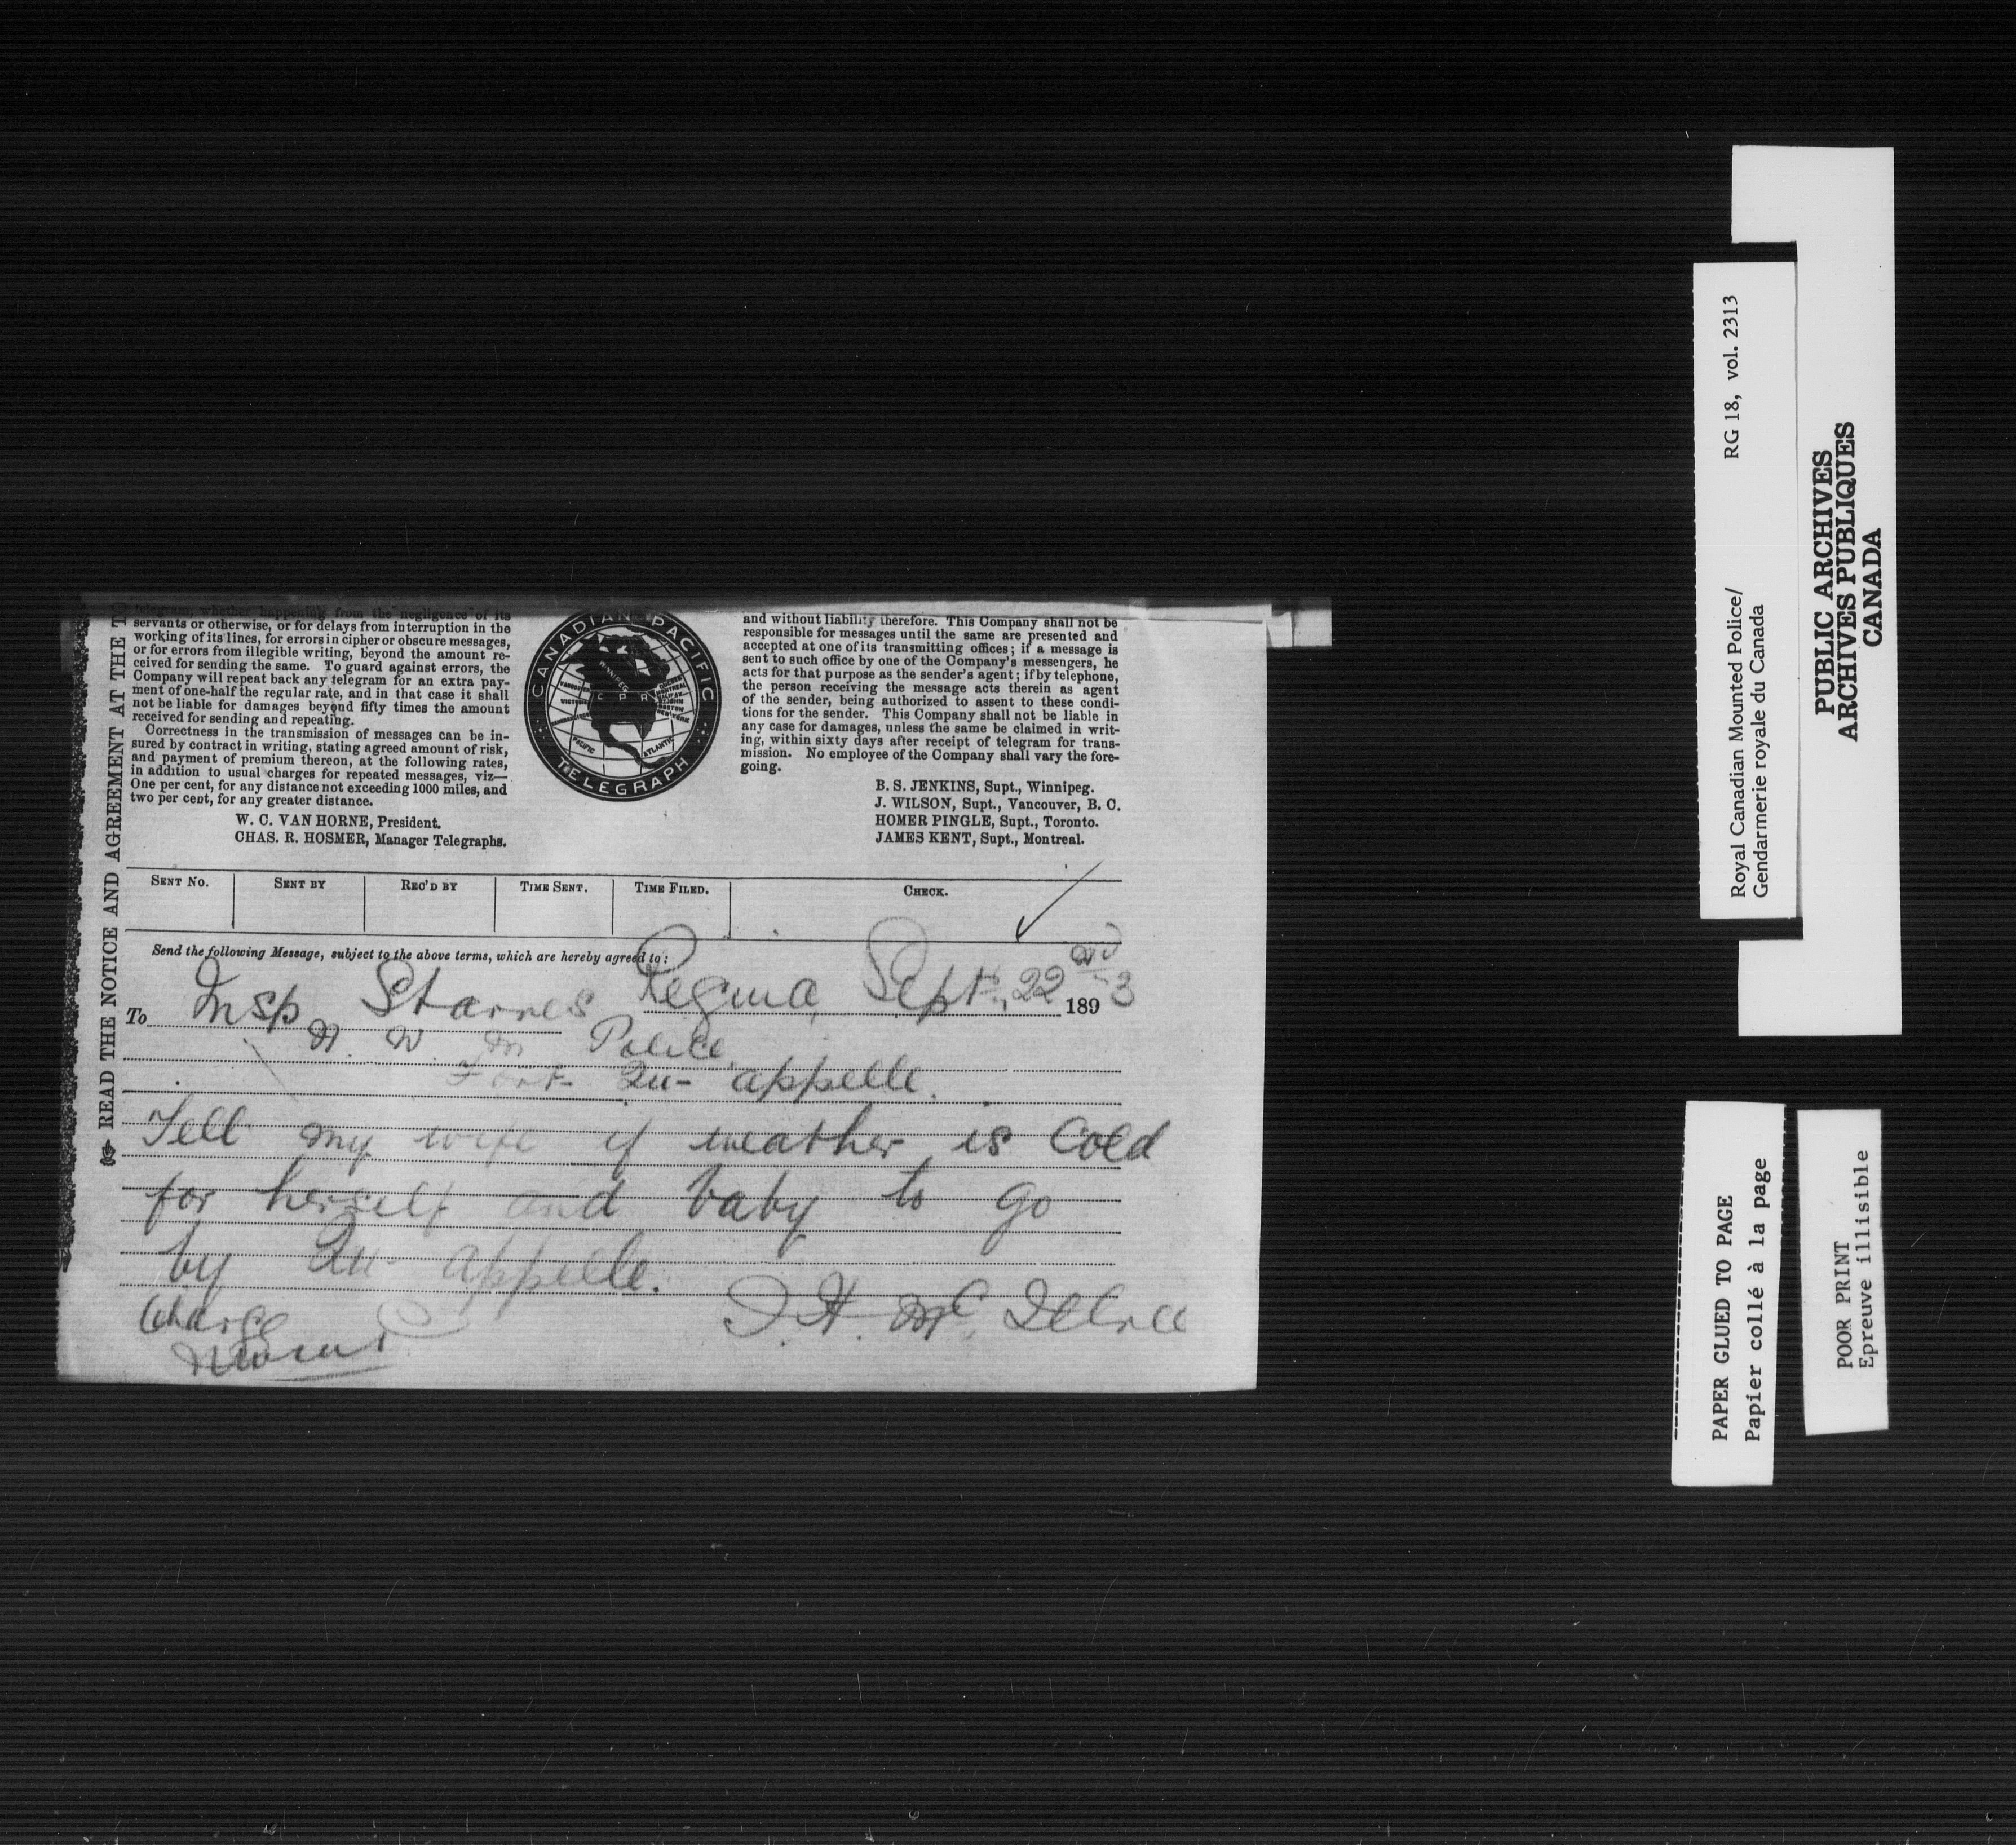 telegram, whether happening from the negligence of its
servants or otherwise, or for delays from interruption in the
working of its lines, for errors in cipher or obscure messages,
or for errors from illegible writing, beyond the amount re-
ceived for sending the same. To guard against errors, the
Company will repeat back any telegram for an extra pay-
ment of one-half the regular rate, and in that case it shall
not be liable for damages beyond fifty times the amount
received for sending and repeating.
Correctness in the transmission of messages can be in-
sured by contract in writing, stating agreed amount of risk,
and payment of premium thereon, at the following rates,
in addition to usual charges for repeated messages, viz—
One per cent, for any distance not exceeding 1000 miles, and
two per cent, for any greater distance.
W. C. VAN HORNE, President.
CHAS. R. HOSMER, Manager Telegraphs.
CANADIAN PACIFIC
WINNIPEG
C P R
PACIFIC
ATLANTIC
TELEGRAPH
and without liability therefore. This Company shall not be
responsible for messages until the same are presented and
accepted at one of its transmitting offices; if a message is
sent to such office by one of the Company's messengers, he
acts for that purpose as the sender's agent; if by telephone,
the person receiving the message acts therein as agent
of the sender, being authorized to assent to these condi-
tions for the sender. This Company shall not be liable in
any case for damages, unless the same be claimed in writ-
ing, within sixty days after receipt of telegram for trans-
mission. No employee of the Company shall vary the fore-
going.
B. S. JENKINS, Supt., Winnipeg.
J. WILSON, Supt., Vancouver, B. C.
HOMER PINGLE, Supt., Toronto.
JAMES KENT, Supt., Montreal.
READ THE NOTICE AND AGREEMENT AT THE TO
SENT NO. SENT BY REC'D BY TIME SENT. TIME FILED. CHECK.
Send the following Message, subject to the above terms, which are hereby agreed to:
Regina, Sept. 22nd 1893
To Insp Starnes
N. W. M Police
Fort Qu-appelle.
Tell my wife if weather is cold
for herself and baby to go
by Qu-appelle.
J. H. McIllree
Charge
Royal Canadian Mounted Police/ RG 18, vol. 2313
Gendarmerie royale du Canada
PUBLIC ARCHIVES
ARCHIVES PUBLIQUES
CANADA
PAPER GLUED TO PAGE
Papier collé à la page
POOR PRINT
Epreuve illisible